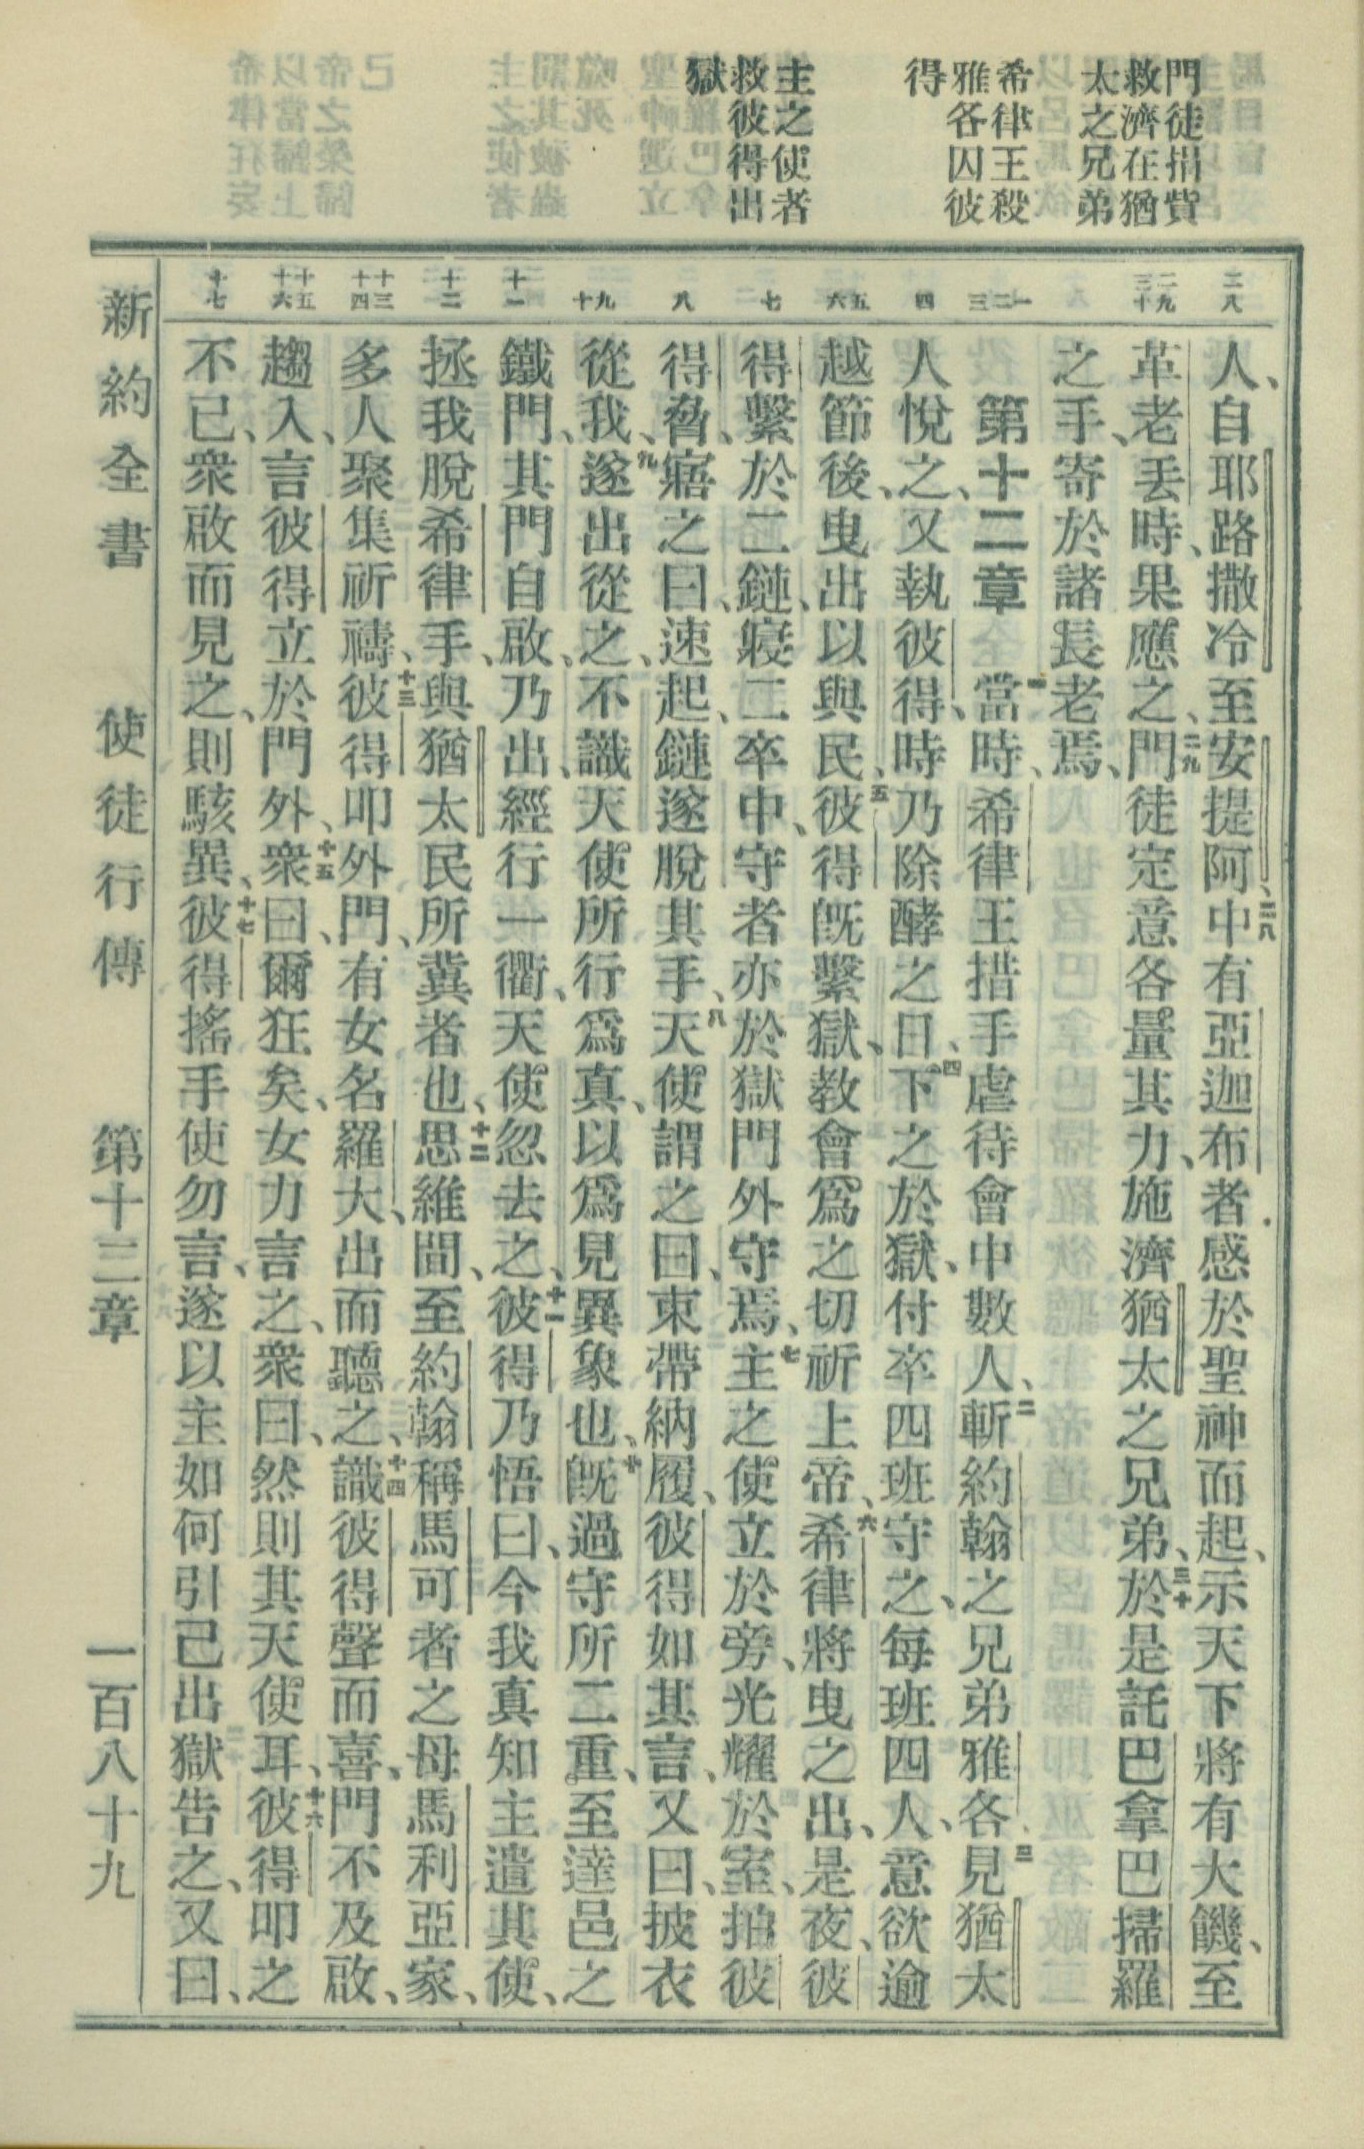 門徒捐貲
救濟在猶
太之兄弟
希律王殺
雅各囚彼
得
主之使者
救彼得出
獄
二八
二九 三十
一 二 三
四
五 六
七
八
九 十
十一
十二
十三 十四
十五 十六
十七
人、自耶路撒冷至安提阿、二八中有亞迦布者感於聖神而起、示天下將有大饑、至
革老丢時、果應之、二九門徒定意各量其力、施濟猶太之兄弟、三十於是託巴拿巴掃羅
之手、寄於諸長老焉、
第十二章 一當時、希律王措手虐待會中數人、二斬約翰之兄弟雅各、三見猶太
人悅之、又執彼得、時乃除酵之日、四下之於獄、付卒四班守之、每班四人、意欲逾
越節後、曳出以與民、五彼得旣繫獄、教會爲之切祈上帝、六希律將曳之出、是夜、彼
得繫於二鏈、寢二卒中、守者亦於獄門外守焉、七主之使立於旁、光耀於室、拍彼
得脅、寤之曰、速起、鏈遂脫其手、八天使謂之曰、束帶納履、彼得如其言、又曰、披衣
從我、九遂出從之、不識天使所行爲真、以爲見異象也、十旣過守所二重、至達邑之
鐵門、其門自啟、乃出、經行一衢、天使忽去之、十一彼得乃悟曰、今我真知主遣其使、
拯我脫希律手、與猶太民所冀者也、十二思維間、至約翰稱馬可者之母馬利亞家、
多人聚集祈禱、十三彼得叩外門、有女名羅大、出而聽之、十四識彼得聲而喜、門不及啟、
趨入、言彼得立於門外、十五衆曰、爾狂矣、女力言之、衆曰、然則其天使耳、十六彼得叩之
不已、衆啟而見之、則駭異、十七彼得搖手使勿言、遂以主如何引己出獄告之、又曰、
新約全書 使徒行傳 第十二章 一百八十九